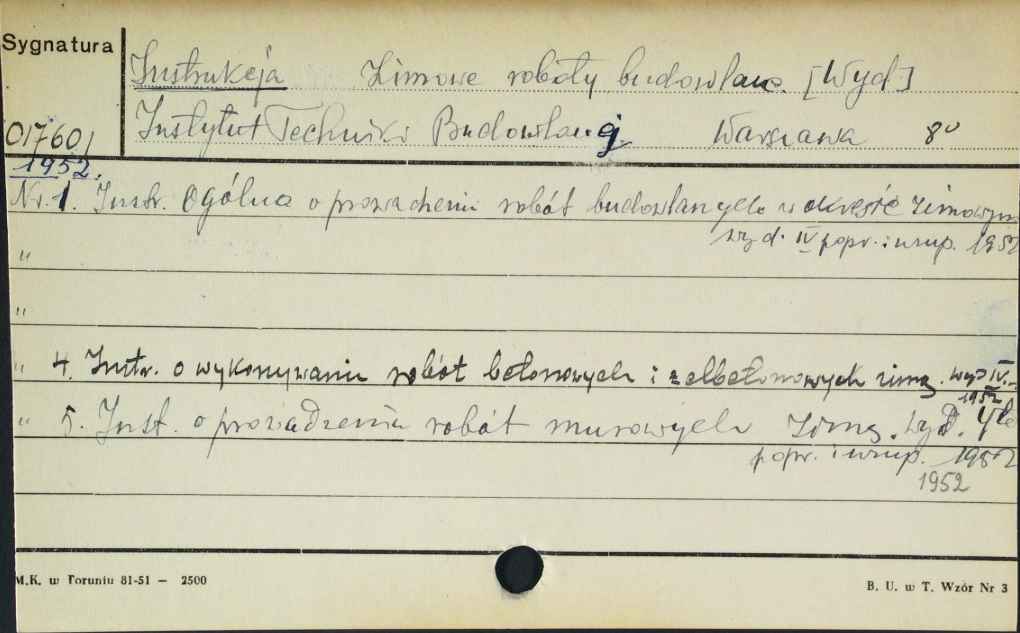 Sygnatura
Instrukcja Zimowe roboty budowlane. [Wyd:]
Instytut Techniki Budowlanej Warszawa 8°
01760/
1952.
Nr. 1. Instr. Ogólna o prowadzeniu robót budowlanych w okresie zimowym
wyd. IV popr. i uzup. 1952
"
"
" 4. Instr. o wykonywaniu robót betonowych i żelbetonowych zimą. wyd IV.
1952
" 5. Inst. o prowadzeniu robót murowych Zimą. Wyd.
popr. i uzup. 1952
1952
M.K. w Toruniu 81-51 — 2500
B. U. w T. Wzór Nr 3